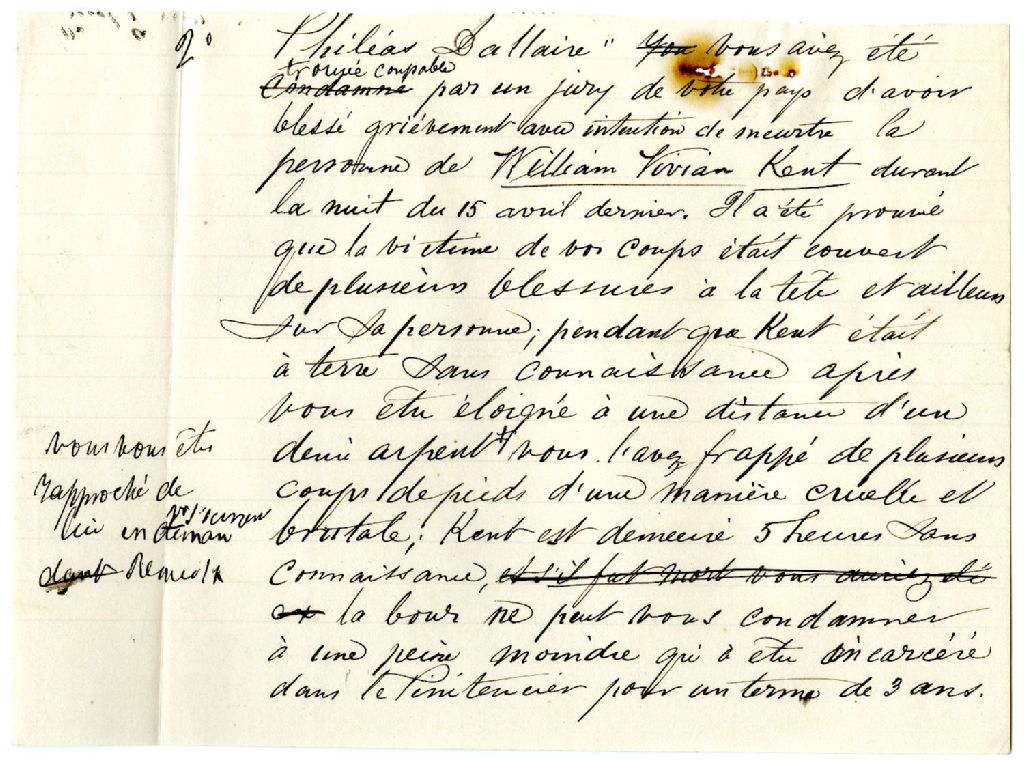 2°
Philéas Dallaire" You vous avez été
trouvée coupable
Condamné par un jury de votre pays d'avoir
blessé grièvement avec intention de meurtre la
personne de William Vivian Kent durant
la nuit du 15 avril dernier. Il a été prouvé
que la victime de vos coups était couvert
de plusieurs blessures à la tête et ailleurs
sur sa personne; pendant que Kent était
à terre sans connaissance après
vous être éloigné à une distance d'un
demi arpent vous l'avez frappé de plusieurs
coups de pieds d'une manière cruelle et
brutale; Kent est demeuré 5 heures sans
connaissance, et s'il fut mort vous auriez été
la cour ne peut vous condamner
à une peine moindre qu'à être incarcéré
dans le Pénitencier pour un terme de 3 ans.
vous vous êtes
rapproché de
lui en